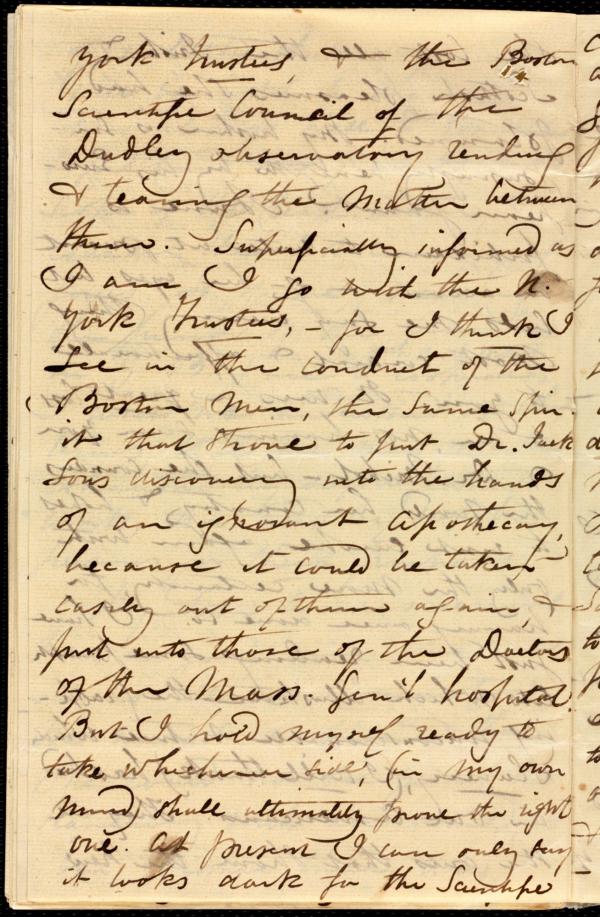 york trustees, & the Boston
Scientific Council of the
Dudley observatory rending
& tearing the matter between
them. Superficially informed as
I am I go with the N.
York Trustees, - for I think I
see in the conduct of the
Boston men, the same spir-
it that strove to put Dr. Jack
sons discovery into the hands
of an ignorant apothecary,
because it could be taken
easily out of them again, &
put into those of the Doctors
of the Mass. Gen'l hospital.
But I hold myself ready to
take whichever side, (in my own
mind) shall ultimately prove the right
one. At present I can only say
it looks dark for the Scientific